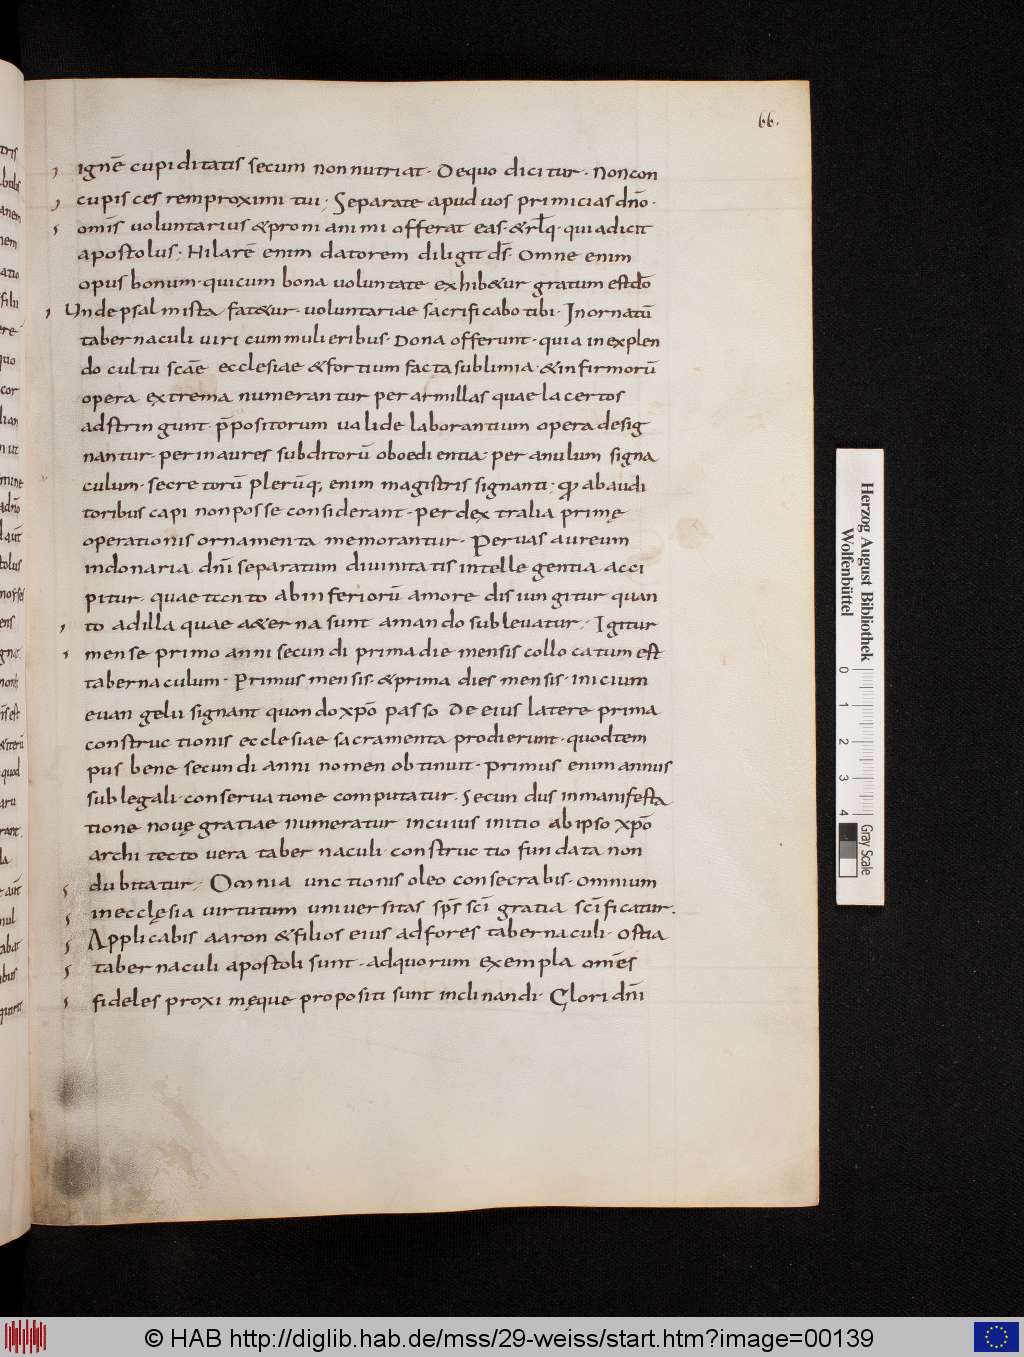 66.
ignē cupiditatis secum non nutriat · De quo dicitur · Non con
cupisces rem proximi tui; Separate apud vos primicias dn̄o ·
om̄s voluntarius & proni animi offerat eas · & rłq · qui adicit
apostolus · Hilarē enim datorem diligit ds̄ · Omne enim
opus bonum · quicum bona voluntate exhib&ur gratum est dō
Unde psalmista fat&ur · voluntariae sacrificabo tibi · In ornatū
tabernaculi viri cum mulieribus · Dona offerunt · quia in explen
do cultu scāe ecclesiae & fortium facta sublimia · & infirmorū
opera extrema numerantur per armillas quae lacertos
adstringunt · p̄positorum valide laborantium opera desig
nantur · per inaures subditorū oboedientia · per anulum signa
culum · secretorū plerūq; enim magistris signanti; ꝙ ab audi
toribus capi non posse considerant · per dextralia primę
operationis ornamenta memorantur · Per vas aureum
in donaria dn̄i separatum divinitatis intellegentia acci
pitur · quae tanto ab inferiorū amore disiungitur quan
to ad illa quae a&erna sunt amando sublevatur; Igitur
mense primo anni secundi prima die mensis collocatum est
tabernaculum · Primus mensis · & prima dies mensis · inicium
evangelii signant quando xp̄o passo de eius latere prima
constructionis ecclesiae sacramenta prodierunt · quod tem
pus bene secundi anni nomen obtinuit · Primus enim annus
sub legali conservatione computatur · Secundus in manifesta
tione novę gratiae numeratur in cuius initio ab ipso xp̄o
architecto vera tabernaculi constructio fundata non
dubitatur; Omnia unctionis oleo consecrabis · omnium
in ecclęsia virtutum universitas sp̄s sc̄i gratia sc̄ificatur.
Applicabis aaron & filios eius ad fores tabernaculi · Ostia
tabernaculi apostoli sunt · ad quorum exempla om̄es
fideles proximęque propositi sunt inclinandi · Glori dn̄i
Herzog August Bibliothek
Wolfenbüttel
0 1 2 3 4
Gray Scale
© HAB http://diglib.hab.de/mss/29-weiss/start.htm?image=00139